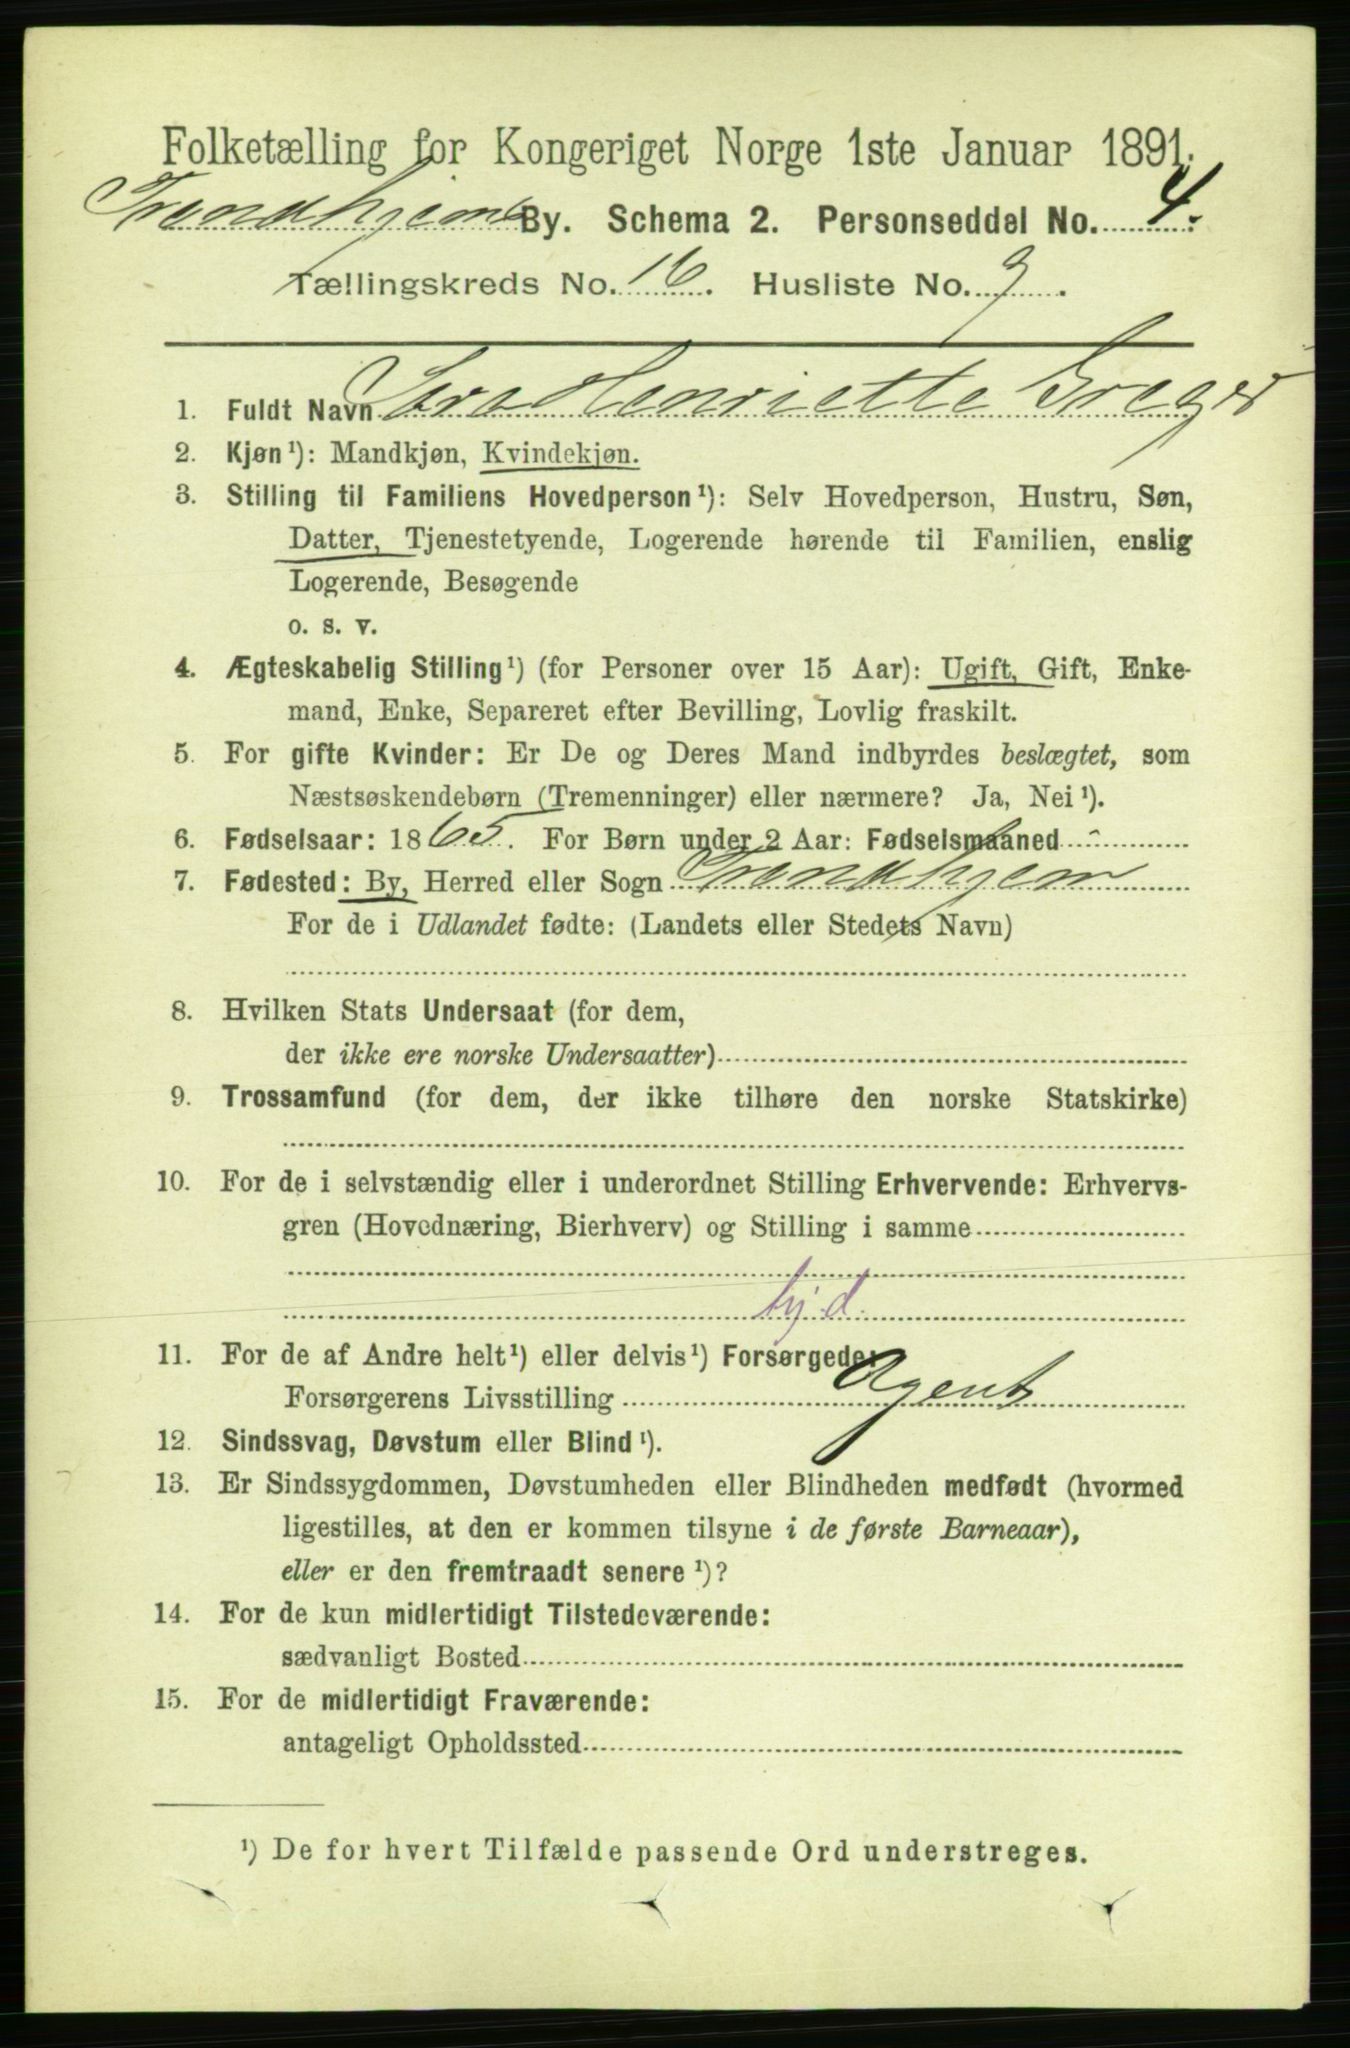 Folketælling for Kongeriget Norge 1ste Januar 1891.
Trondhjems By. Schema 2. Personseddel No. 4.
Tællingskreds No. 16. Husliste No. 9.
1. Fuldt Navn Henriette
2. Kjøn ¹): Mandkjøn, Kvindekjøn.
3. Stilling til Familiens Hovedperson ¹): Selv Hovedperson, Hustru, Søn,
Datter, Tjenestetyende, Logerende hørende til Familien, enslig
Logerende, Besøgende
o. s. v.
4. Ægteskabelig Stilling ¹) (for Personer over 15 Aar): Ugift, Gift, Enke-
mand, Enke, Separeret efter Bevilling, Lovlig fraskilt.
5. For gifte Kvinder: Er De og Deres Mand indbyrdes beslægtet, som
Næstsøskendebørn (Tremenninger) eller nærmere? Ja, Nei ¹).
6. Fødselsaar: 1865. For Børn under 2 Aar: Fødselsmaaned -
7. Fødested: By, Herred eller Sogn Trondhjem
For de i Udlandet fødte: (Landets eller Stedets Navn)
8. Hvilken Stats Undersaat (for dem,
der ikke ere norske Undersaatter)
9. Trossamfund (for dem, der ikke tilhøre den norske Statskirke)
10. For de i selvstændig eller i underordnet Stilling Erhvervende: Erhvervs-
gren (Hovednæring, Bierhverv) og Stilling i samme
hj. d.
11. For de af Andre helt ¹) eller delvis ¹) Forsørgede:
Forsørgerens Livsstilling Agent
12. Sindssvag, Døvstum eller Blind ¹).
13. Er Sindssygdommen, Døvstumheden eller Blindheden medfødt (hvormed
ligestilles, at den er kommen tilsyne i de første Barneaar),
eller er den fremtraadt senere ¹)?
14. For de kun midlertidigt Tilstedeværende:
sædvanligt Bosted
15. For de midlertidigt Fraværende:
antageligt Opholdssted
¹) De for hvert Tilfælde passende Ord understreges.